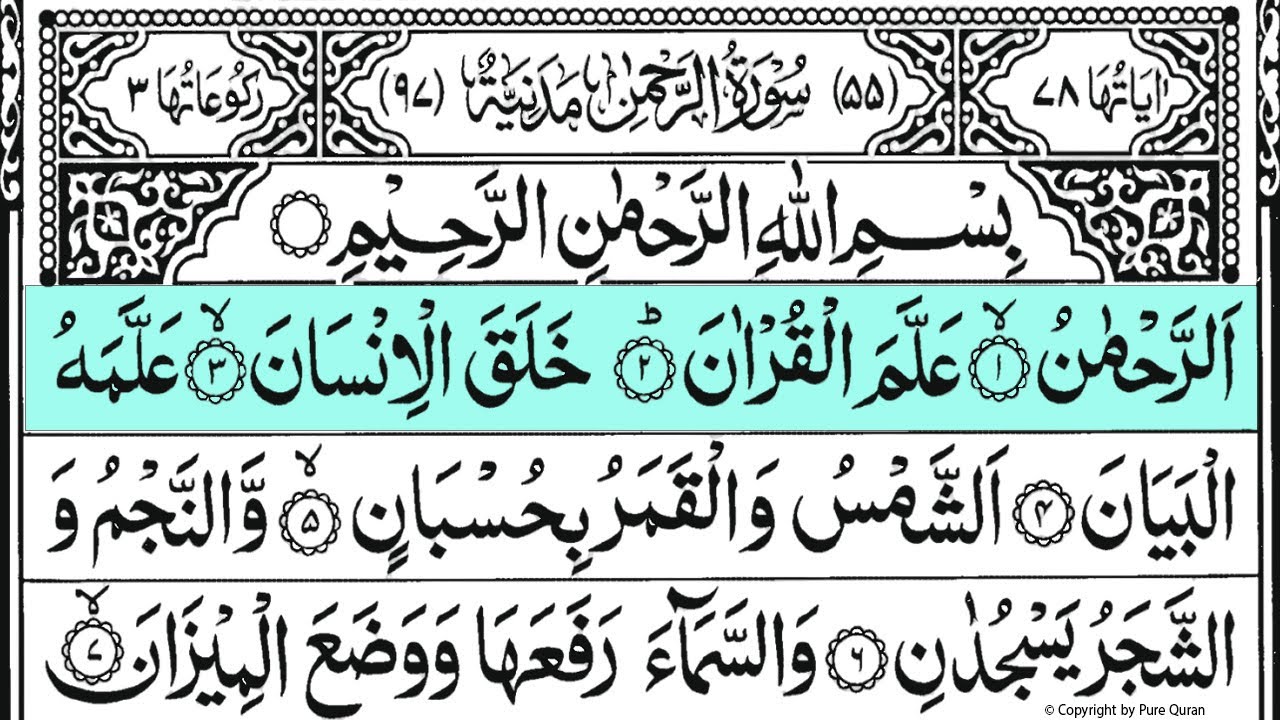 اٰیَاتُهَا ٧٨ (٥٥) سُوْرَةُ الرَّحْمٰنِ مَدَنِيَّةٌ (٩٧) رُكُوْعَاتُهَا ٣
بِسْمِ اللّٰهِ الرَّحْمٰنِ الرَّحِيْمِ
اَلرَّحْمٰنُ ۙ﴿١﴾ عَلَّمَ الْقُرْاٰنَ ؕ﴿٢﴾ خَلَقَ الْاِنْسَانَ ۙ﴿٣﴾ عَلَّمَهُ
الْبَيَانَ ﴿٤﴾ اَلشَّمْسُ وَالْقَمَرُ بِحُسْبَانٍ ۙ﴿٥﴾ وَّالنَّجْمُ وَ
الشَّجَرُ يَسْجُدٰنِ ﴿٦﴾ وَالسَّمَآءَ رَفَعَهَا وَوَضَعَ الْمِيْزَانَ ۙ﴿٧﴾
© Copyright by Pure Quran